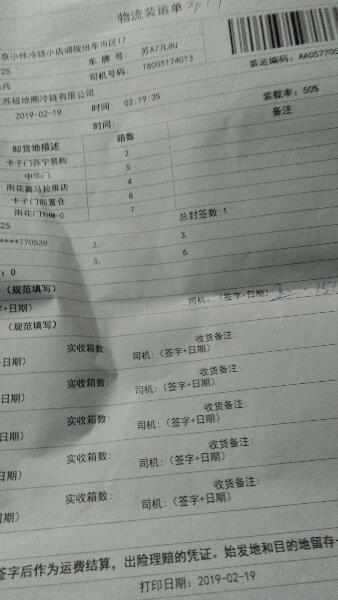 物流装运单
京小件冷链小店调拨班车市区17
25 车 牌 号: 苏A77L8U
司机号码: 18005174013 装运编码: AA05770
江苏极地熊冷链有限公司
2019-02-19 时间: 02:19:35 装载率: 50%
时间: 备注
卸货地描述 箱数
卡子门苏宁易购 2
中华门 5
雨花喜马拉雅店 4
卡子门前置仓 8
雨花门 7
25 总封签数:1
****770538 2. 3.
5. 6.
: 0
(规范填写)
字+日期) 司机: (签字+日期)
(规范填写)
实收箱数: 收货备注:
字+日期) 司机: (签字+日期)
实收箱数: 收货备注:
日期) 司机: (签字+日期)
实收箱数: 收货备注:
日期) 司机: (签字+日期)
实收箱数: 收货备注:
日期) 司机: (签字+日期)
实收箱数: 收货备注:
日期) 司机: (签字+日期)
签字后作为运费结算，出险理赔的凭证。始发地和目的地留存一
打印日期: 2019-02-19